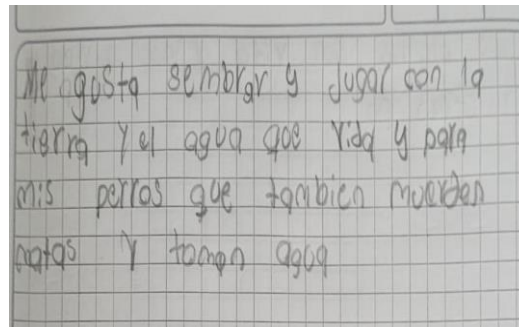 Me gusta sembrar y Jugar con la
tierra y el agua que rida y para
mis perros que tambien muerden
matas y toman agua